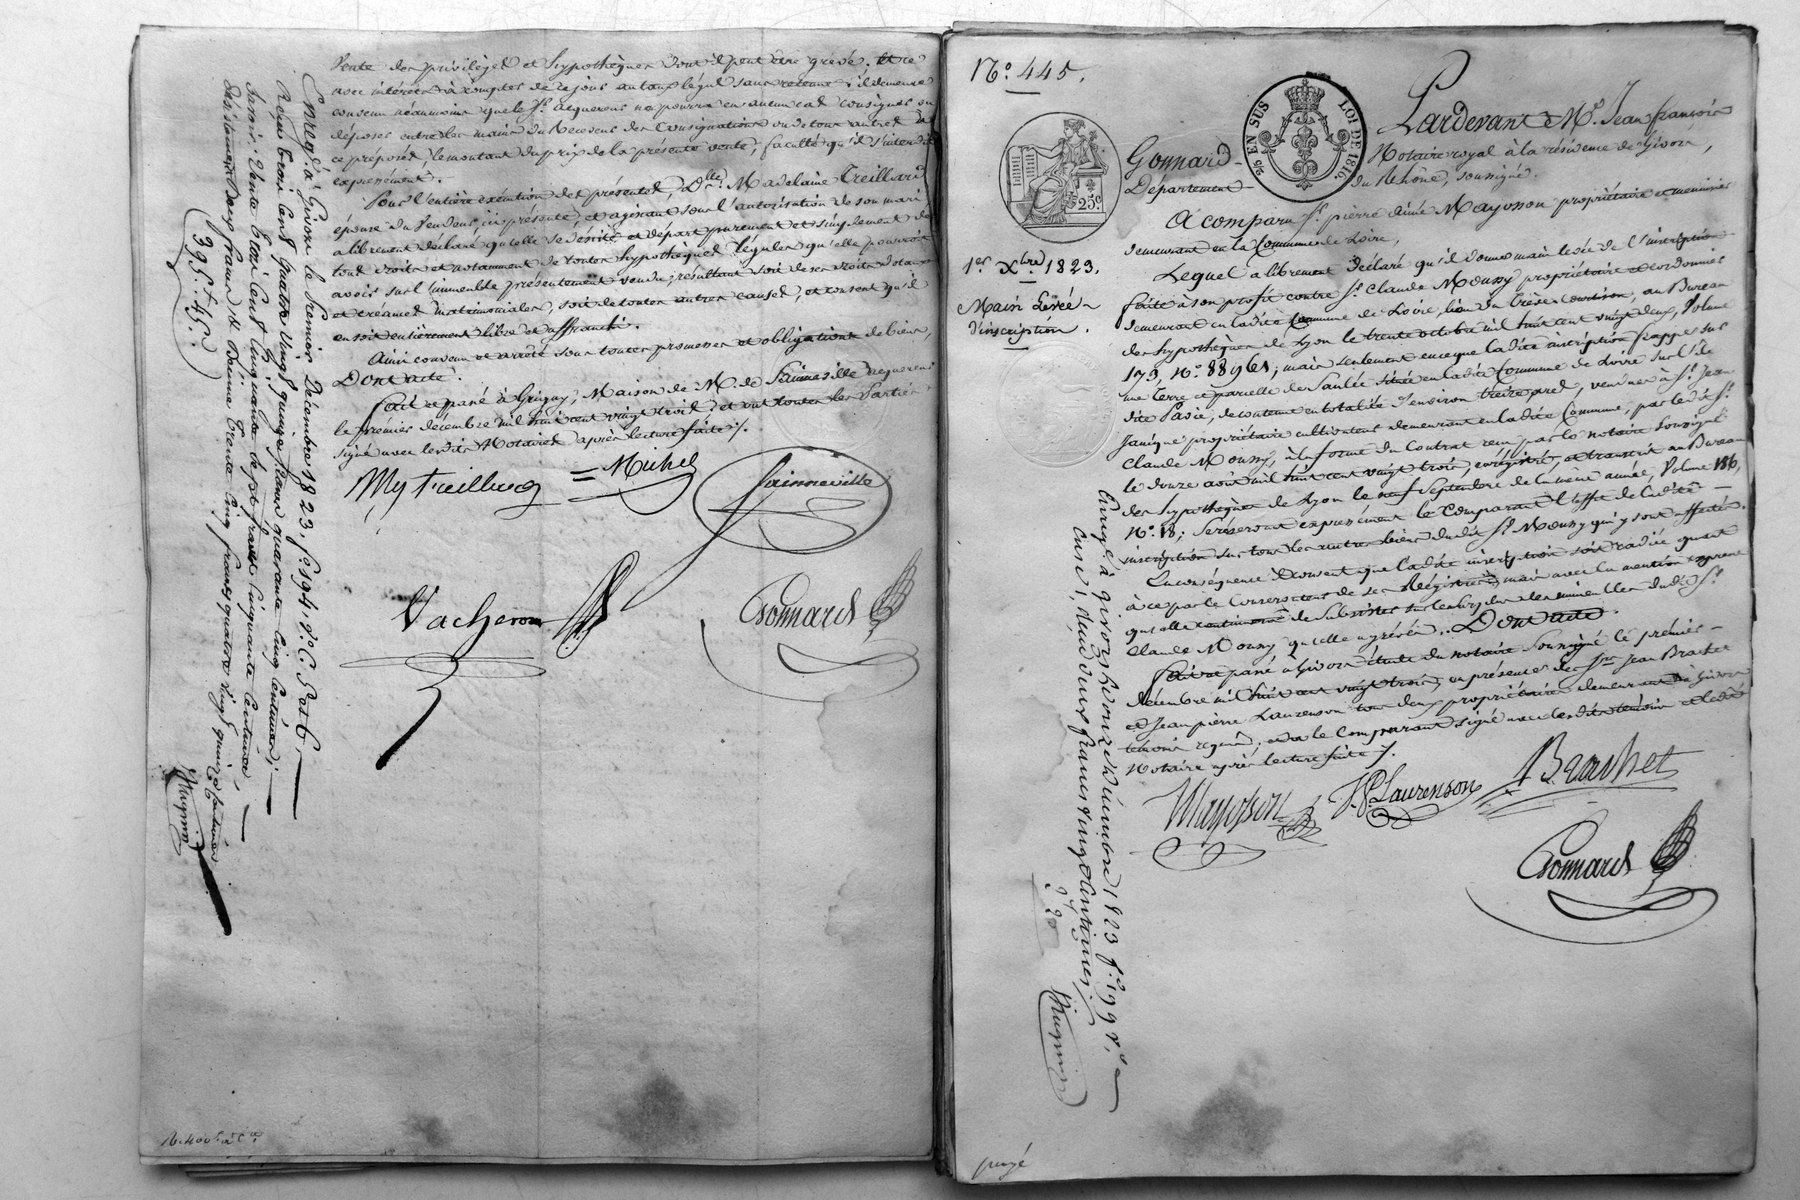 vente des privilèges et hypothèques dont il peut être grévé. Et ce
avec intérêts à compter de ce jour au taux légal sans retenue; il demeure
convenu néanmoins que le Sr. acquereur ne pourra en aucun cas consigner ou
déposer entre les mains du Receveur des Consignations ou de tous autres à
ce préposés, le montant du prix de la présente vente, faculté qu'il s'interdit
expressément.
Pour l'entière exécution des présentes, Dlle. Madelaine Treillard
épouse du Vendeur, ici présente, et agissant sous l'autorisation de son mari
a librement déclaré qu'elle se désiste et départ purement et simplement de
tous droits et notamment de toutes hypothèques légales qu'elle pourroit
avoir sur l'immeuble présentement vendu, résultant soit de ses droits dotaux
et créances matrimoniales, soit de toutes autres causes, et consent qu'il
en soit entièrement libre et affranchi.
Ainsi convenu et arrêté sous toutes promesses et obligations de biens,
Dont acte.
Fait et passé à Grigny, Maison de M. de Sainneville
le premier décembre mil huit cent vingt trois, et ont toutes les Parties
signé avec lesdits Notaires après lecture faite /.
Michel
Sainneville
Vacheron
Gonnard
Enreg.é à Givors le premier Décembre 1823, f.o 194 v.o C. 5 et 6
Reçu trois cent quatre vingt quinze francs quarante cinq centimes;
Savoir: Vente trois cent cinquante sept francs cinquante centimes,
Désistement Deux francs & Dixième trente cinq francs quatre vingt quinze centimes
395.f 45.c
Mugnier
N.o 445.
25c
EN SUS
LOI DE 1816.
1er. Xbre. 1823.
Main Levée
d'inscription.
Pardevant Me. Jean françois
Gonnard Notaire royal à la résidence de Givors,
Département du Rhône, soussigné.
A comparu Sr. pierre aimé Mayosson propriétaire et menuisier
demeurant en la Commune de Loire,
Lequel a librement déclaré qu'il donne main levée de l'inscription
faite à son profit contre Sr. Claude Mouny propriétaire et cordonnier
demeurant en ladite Commune de Loire, au Bureau
des hypothèques de Lyon le trente octobre mil huit cent vingt deux, Volume
173, N.o 88961; mais seulement en ce que ladite inscription frappe sur
une terre et parcelle de Saulée située en ladite Commune de Loire sur l'île
vendues à Sr. Jean
Janique propriétaire cultivateur demeurant en ladite Commune, par ledit Sr.
Claude Mouny, à la forme du Contrat reçu par le notaire soussigné
le douze aout mil huit cent vingt trois, enrégistré, et transcrit au Bureau
des hypothèques de Lyon le neuf Septembre de la même année, Volume 186,
N.o 18; se réservant expressément le Comparant l'effet de ladite
inscription sur tous les autres biens dudit Sr. Mouny qui y sont affectés.
En conséquence il consent que ladite inscription soit radiée quant
à ce par le Conservateur de ses Régistres; mais avec la mention expresse
qu'elle continuera de subsister sur le surplus des immeubles dudit Sr.
Claude Mouny qu'elle a grévés. Dont acte.
Fait et passé à Givors étude du notaire soussigné le premier
décembre mil huit cent vingt trois, en présence de Srs. Jean Brachet
et Jean pierre Laurenson tous deux propriétaires demeurant à Givors
témoins requis; et a le Comparant signé avec lesdits témoins et ledit
Notaire après lecture faite /.
Mayosson
J.P Laurenson
Brachet
Gonnard
Enregé à Givors le onze décembre 1823 f.o 198 v.o
Case 1, reçu deux francs vingt centimes.
2.f 20
Mugnier